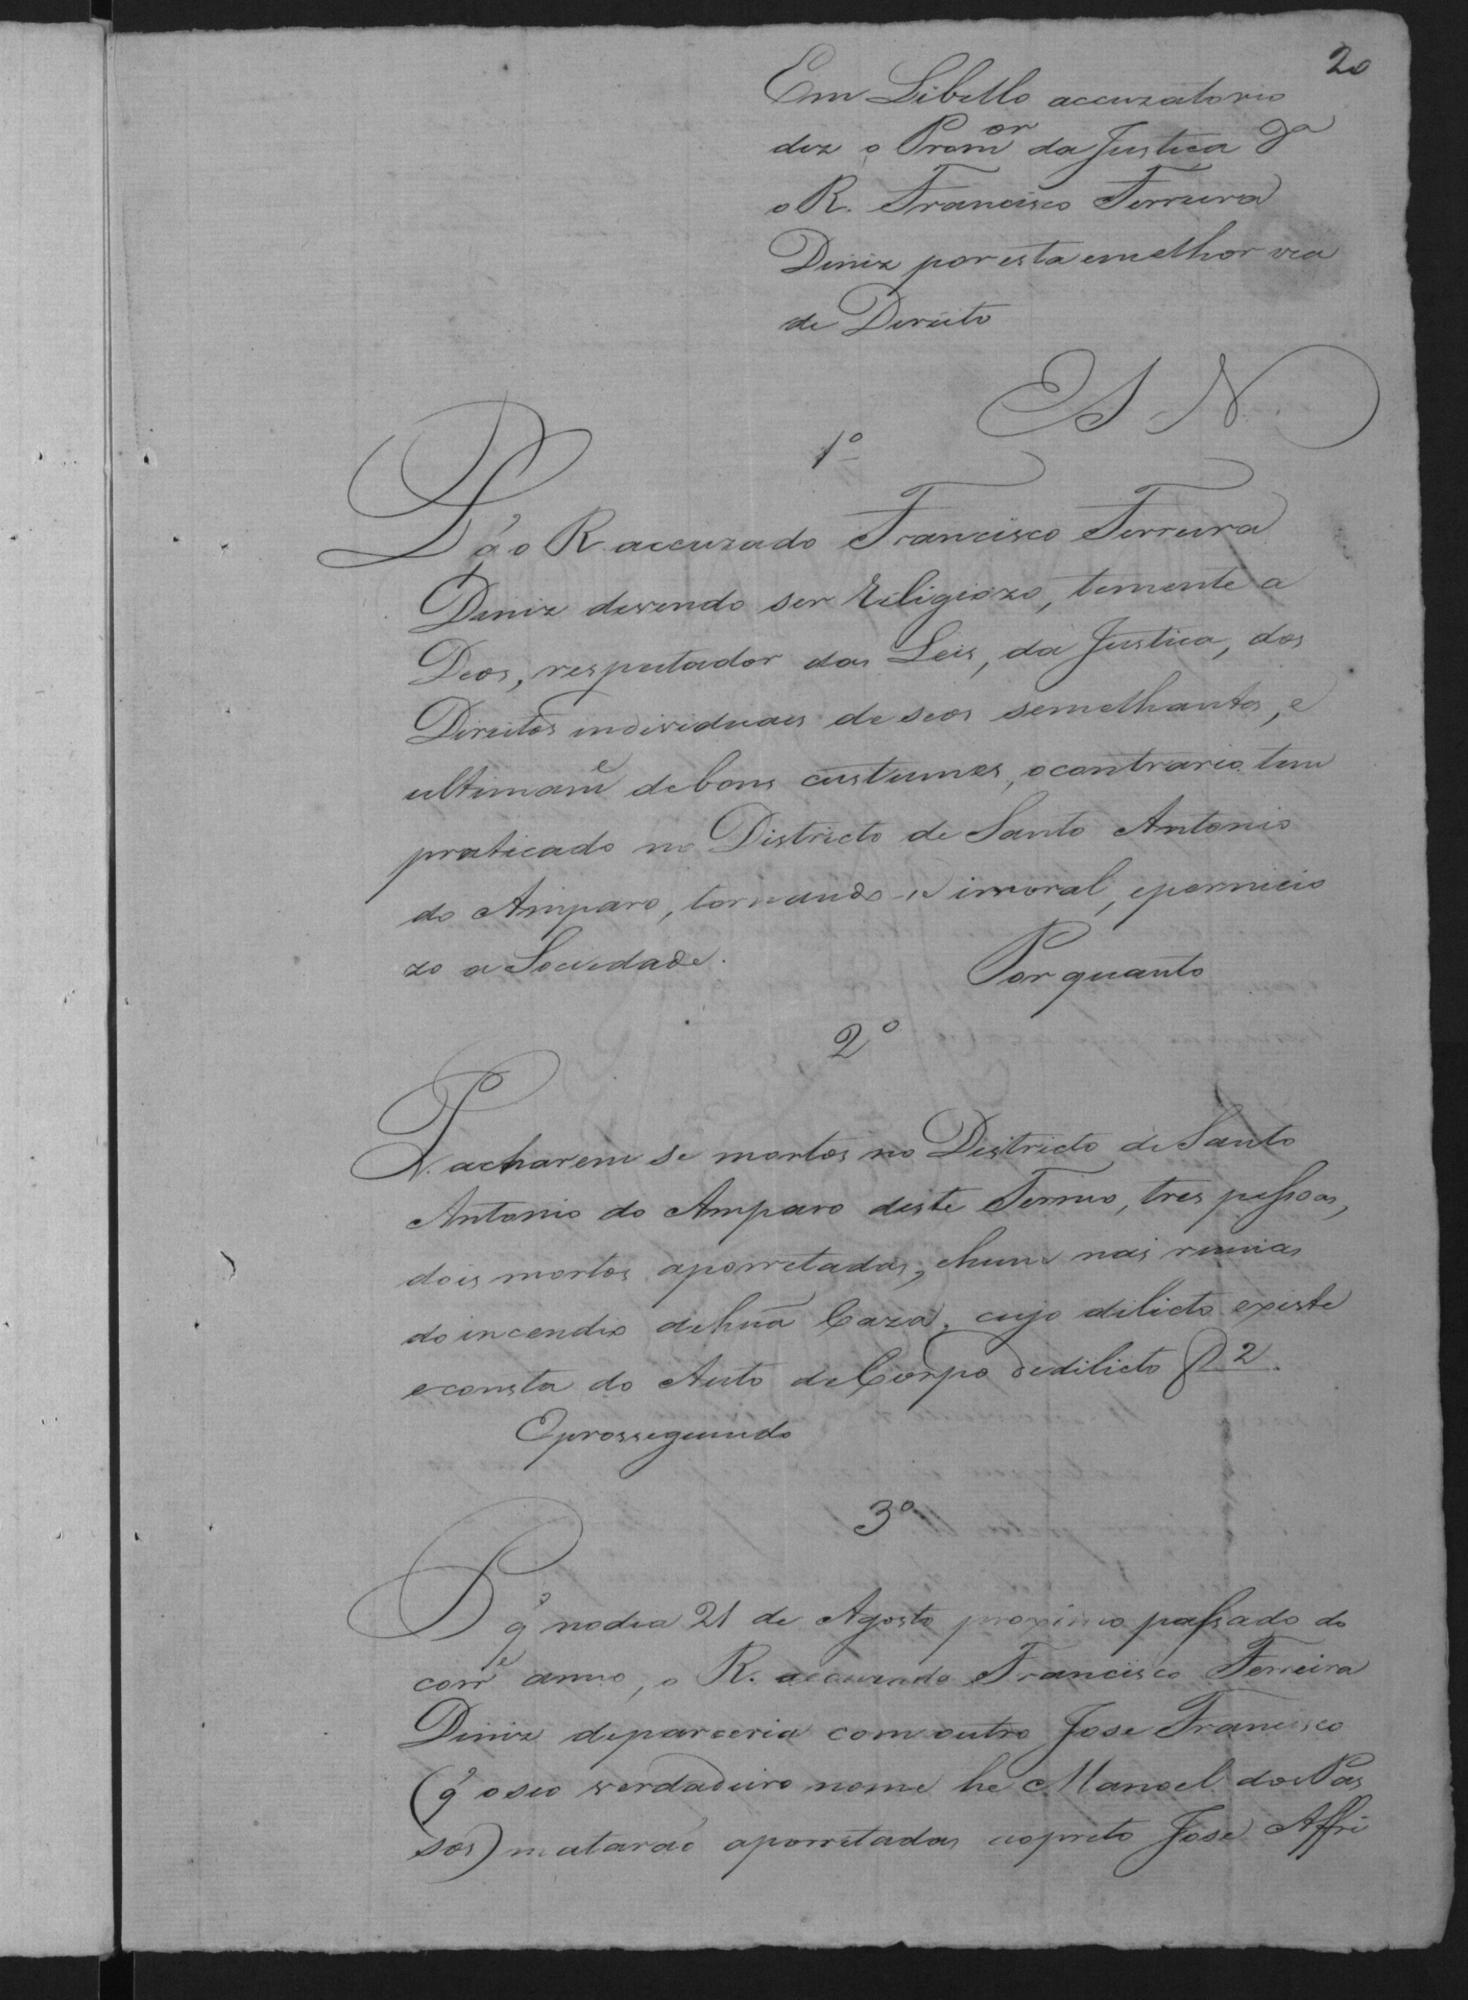 20
Em Libello accuzatorio
diz o Prom.or da Justiça C.ª
o R. Francisco Ferreira
Diniz por esta emelhor via
de Direito
E S N
1º
P. q̃ o R. accuzado Francisco Ferreira
Diniz devendo ser religiozo, temente a
Deos, respeitador das Leis, da Justica, dos
Direitos individuaes de seos semelhantes, e
ultimam.e de bons custumes, ocontrario tem
praticado no Districto de Santo Antonio
do Amparo, tornando-se immoral, epernicio
zo a Sociedade.
Por quanto
2º
P. acharem se mortos no Districto de Santo
Antonio do Amparo deste Termo, tres pessoas,
dois mortos aporretadas, ehum nas ruinas
do incendio dehuã Caza, cujo dilicto existe
econsta do Auto de Corpo dedilicto f 2.
Eprosseguindo
3º
P. q̃ nodia 21 de Agosto proximo passado do
corr.e anno, o R. accuzado Francisco Ferreira
Diniz deparceria com outro Jose Francisco
(q̃ oseo verdadeiro nome he Manoel dos Pas
sos) matarão aporretadas aopreto Jose Affri